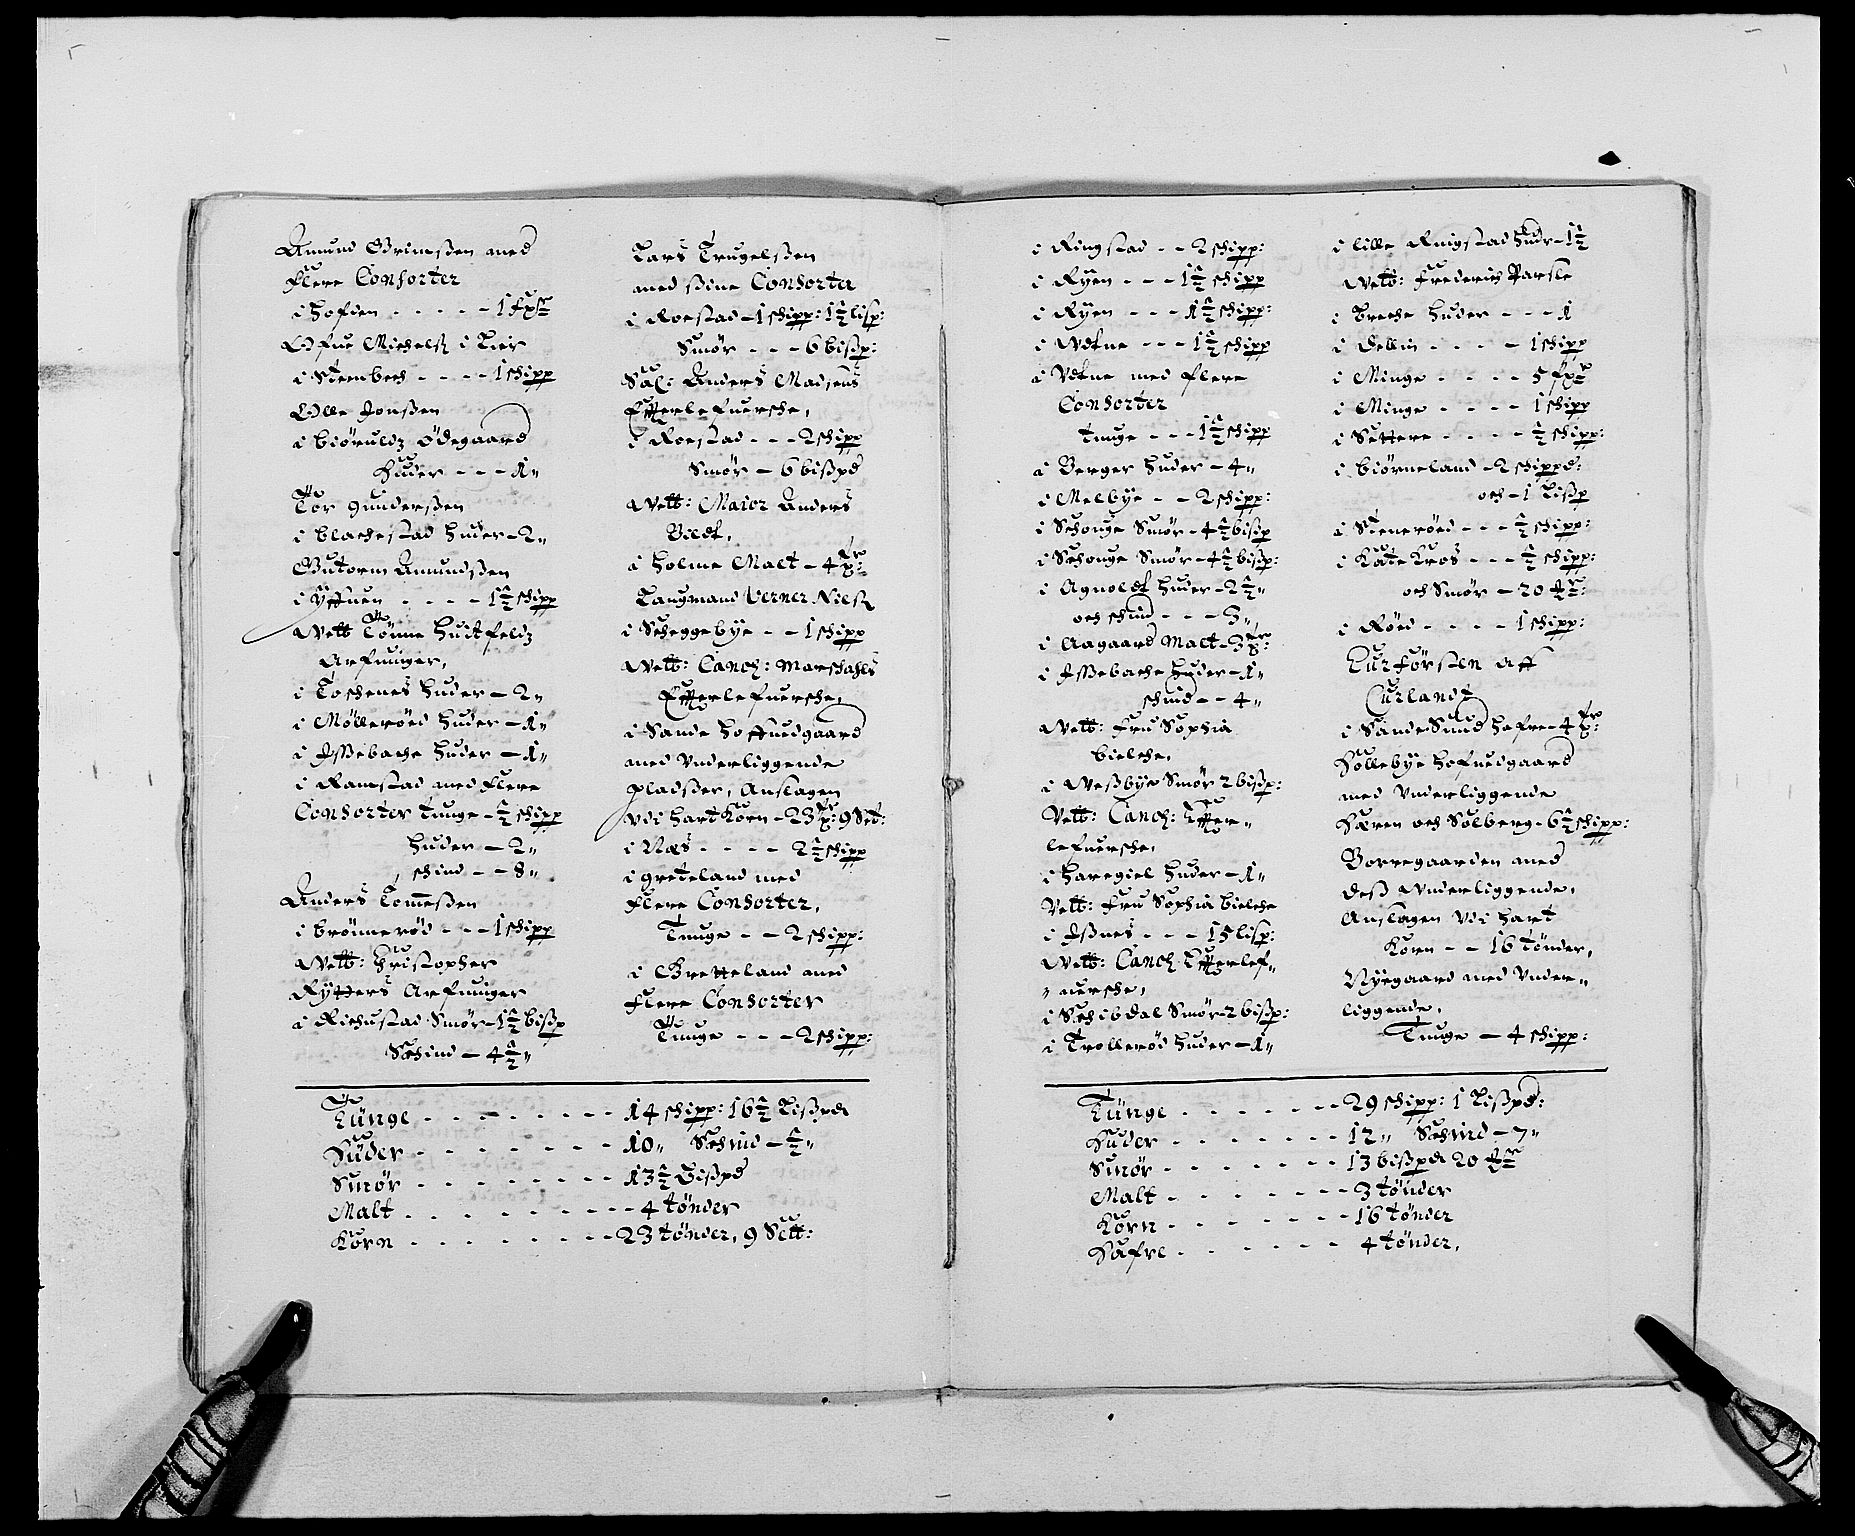 Amund Grimsßen med
flere Consorter
i hofden - - - - - 1 fxr
Olfue Michels: i Lier
i Steenbech - - - - 1 schipp
Olle Jonßen
i biøruldz Ødegaard
Huder - - - 1„
Tor Gunderßen
i blachestad huder - 2„
Gutorm Amundßen
i Ÿffuen - - - - - 1½ schipp
Welb Tønne Huitfeldz
Arfuinger,
i Toschenes huder - 2„
i Møllerøed huder - 1„
i Assebache huder - 1„
i Ramstad med flere
Consorter Tunge - ½ schipp
huder - 2„
schind - - 8„
Anders Tomeßen
i brønnerød - - - 1 schipp
Welb: Christopher
Rÿtters Arfuinger
i Richustad Smør - 1½ bißp
Schind - 4½„
Lars Trugelßen
med ßine Consorter
i Roestad - 1 schipp: 1½ lisp:
Smør - - - 6 bißp:
Sal: Anders Madsens
Efterlefuersche,
i Roestad - - - 2 schipp
Smør - 6 bißpd
Welb: Maior Anders
Bildt,
i Holme Malt - 4 tr:
Laugmand Verner Nielß
i Scheggebÿe - - 1 schipp
Welb: Canch: Marschalls
Efterlefuersche,
i Sande Hoffuedgaard
med Vnderliggende
pladßer, Anslagen
Vdi hart Korn - 23 tr: 9 Set:
i Næs - - - - 2½ schipp
i greteland med
flere Consorter,
Tunge - - 2 schipp:
i Gretteland med
flere Consorter
Tunge - - - 2 schipp:
Tünge - - - - - - - 14 schipp: 16½ Lißpd
Hüder - - - - - - - 10„ Schind - ½„
Smør - - - - - - - - 13½ Bißpd
Malt - - - - - - - - 4 tønder
Korn - - - - - - - - 23 tønder, 9 Sett:
i Ringstad - - 2 schipp:
i Rÿen - - - 1½ schipp
i Rÿen - - - 1½ schipp:
i Wdtne - - - 1½ schipp
i Vdtne med flere
Consorter
Tunge - - - 1½ schipp
i Berger huder - 4„
i Melbÿe - - 2 schipp:
i Schouge Smør - 4½ bißp
i Schouge Smør - 4½ bißp:
i Agnoldt huder - 2½„
och schind - - - 3„
i Aagaard Malt - 3 tr:
i Assebache huder - 1„
schind - - 4„
Welb: Fru Sophia
bielche,
i Weßbÿe Smør 2 bißp:
Velb: Canch: Effter-
lefuersche,
i Haregiel huder - 1„
Velb: Fru Sophia Bielche
i Aßnes - - - 15 lisp:
Welb: Canch Effterlef-
„ uersche,
i Schibdal Smør - 2 bißp:
i Trollerød huder - 1„
i lille Ringstad hudr - 1½
Welb: Frederich Marsle
i Breche huder - - - 1
i Dellin - - - - 1 schipp
i Minge - - - - 5 fxr
i Minge - - - - 1 schipp
i Settere - - - - ½ schipp:
i biørneland - 2 schippd:
och - 1 Lißp
i Stenerøed - - - ½ schipp:
i Kate Kros - - - ½ schipp:
och Smør - 20 mr:
i Røed - - - - 1 schipp:
Curførsten aff
Curlandt
i Sande Sund hafre - 4 tr:
Søllebÿe Hofuedgaard
med Vnderliggende
Særen och Solberg - 6½ schipp:
Borregaarden med
deß Wnderliggende,
Anslagen Vdi hart
Korn - - 16 tønder,
Nÿegaard med Vnder-„
liggende,
Tunge - 4 schipp:
Tünge - - - - - - 29 schipp: 1 Lißpd:
Huder - - - - - - - 12„ Schind - 7„
Smør - - - - - - - 13 bißpd 20 mr
Malt - - - - - - - 3 tønder
Korn - - - - - - - 16 tønder
Hafre - - - - - - 4 tønder,